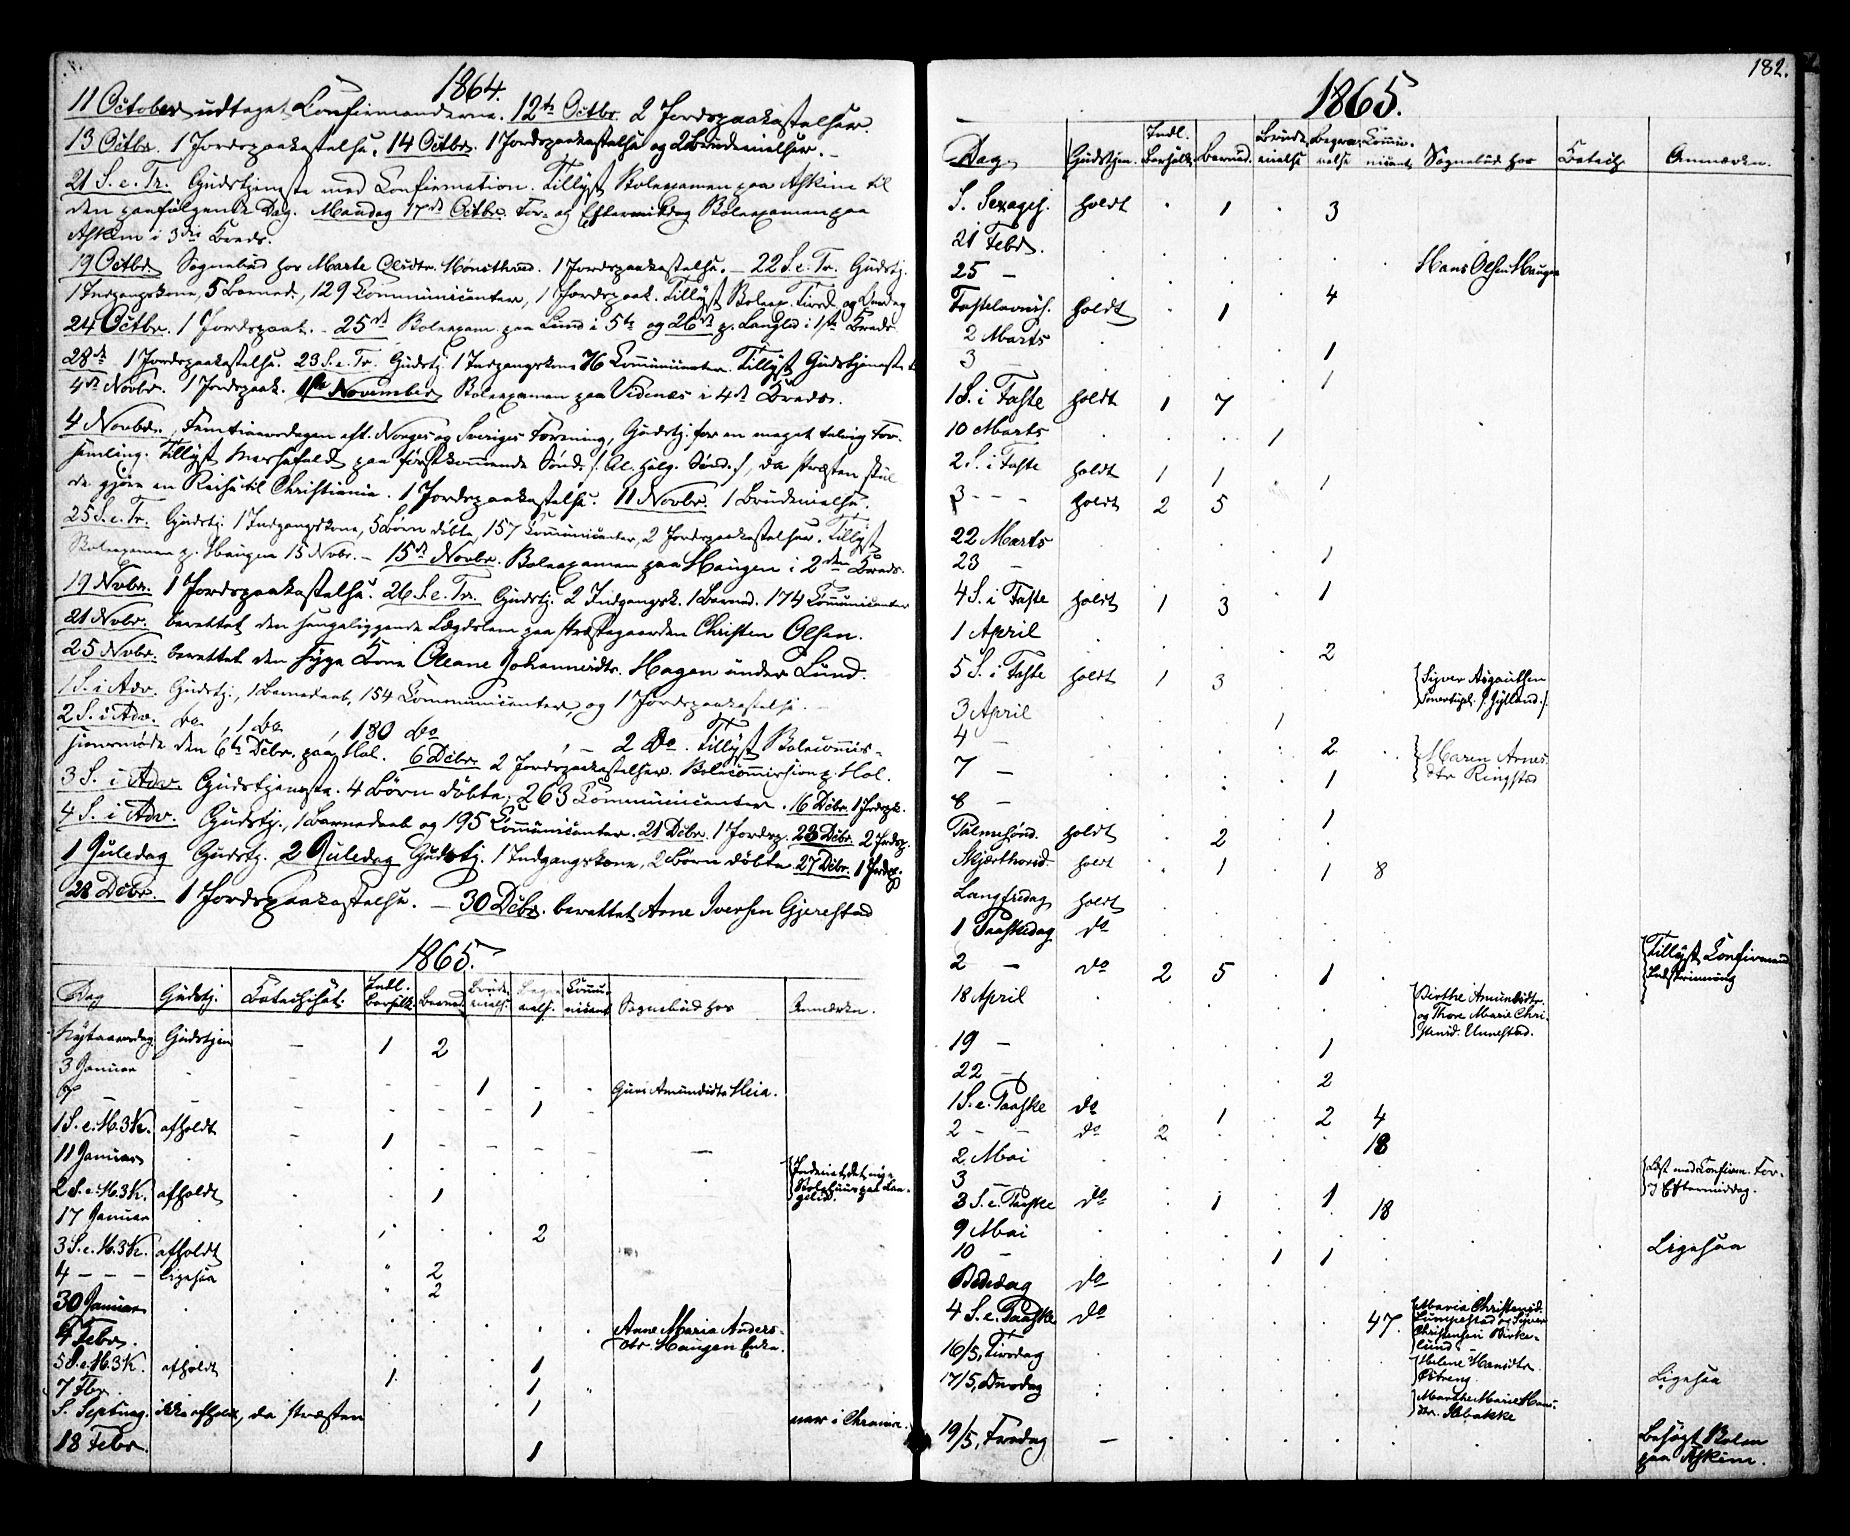 1864.
11 October udtaget Confirmanderne. 12te Octbr. 2 Jordspaakastelser.
13 Octbr. 1 Jordspaakastelse. 14 Octbr. 1 Jordspaakastelse og 2 Brudevielser. –
21 S. e. Tr. Gudstjeneste med Confirmation. Tillyst Skoleexamen paa Askim til
den paafølgende Dag. Mandag 17de Octbr. For- og Eftermiddag Skoleexamen paa
Askim i 3die Kreds.
19 Octbr. Sognebud hos Marte Olsdtr. 1 Jordspaakastelse. – 22 S. e. Tr. Gudstj.
1 Indgangskone, 5 Barned., 129 Communicanter, 1 Jordspaak. Tillyst Skoleex. Tirsd. og Onsdag
24 Octbr. 1 Jordspaak. – 25de Skoleexam. paa Lund i 5te og 26de p. Langlid i 1ste Kreds.
28de 1 Jordspaakastelse. 23 S. e. Tr. Gudstj. 1 Indgangskone 76 Communicanter. Tillyst Gudstjeneste
4de Novbr. 1 Jordspaak. 1ste November Skoleexamen paa Vidnes i 4de Kreds.
4 Novbr., Femtiaarsdagen eft. Norges og Sveriges Forening, Gudstj. for en meget talrig For-
samling. Tillyst Messefald paa førstkommende Sønd. /: Al. Helg. Sønd. :/, da Præsten skul-
de gjøre en Reise til Christiania. 1 Jordspaakastelse. 11 Novbr. 1 Brudevielse.
25 S. e. Tr. Gudstj. 1 Indgangskone, 5 Børn døbte, 157 Communicanter, 2 Jordspaakastelser. Tillyst
Skoleexamen p. Haugen 15 Novbr. – 15de Novbr. Skoleexamen paa Haugen i 2den Kreds.
19 Novbr. 1 Jordspaakastelse. 26 S. e. Tr. Gudstj. 2 Indgangsk. 1 Barned. 174 Communicanter
21 Novbr. berettet den sengeliggende Lægdslem paa Præstegaarden Christen Olsen.
25 Novbr. berettet den syge Kone Oleane Johannesdtr. Hagen under Lund.
1 S. i Adv. Gudstj., 1 Barnedaab, 154 Communicanter, og 1 Jordspaakastelse.
2 S. i Adv. do, 1 do, 180 do, – 2 Do. Tillyst Skolecommis-
sionsmøde den 6te Decbr. paa Hol. 6 Decbr. 2 Jordspaakastelser. Skolecommission p. Hol.
3 S. i Adv. Gudstjeneste. 4 Børn døbte, 263 Communicanter. 16 Decbr. 1 Jordspk.
4 S. i Adv. Gudstj., 1 Barnedaab og 195 Communicanter. 21 Decbr. 1 Jordsp. 23 Decbr. 2 Jordsp.
1 Juledag Gudstj. 2 Juledag Gudstj. 1 Indgangskone, 2 Børn døbte. 27 Decbr. 1 Jordsp.
28 Decbr. 1 Jordspaakastelse. – 30 Decbr. berettet Arne Iversen Gjerestad
1865.
Dag Gudstj. Catechisat. Indl. Barselk. Barned. Brude-vielse. Begra-velse. Commu-nicant. Sognebud hos Anmærkn.
Nytaarsdag Gudstjen – 1 2
3 Januar
7 – 1 Guri Amundsdtr Heia.
1 S. e. H. 3 K. afholdt – 1
11 Januar 1
2 S. e. H. 3 K. afholdt 1
17 Januar
3 S. e. H. 3 K. afholdt 2
4 – – – Ligesaa 2
30 Januar 2
4 Febr. Anne Maria Anders-dtr. Haugen
5 S. e. H. 3 K. afholdt 1
7 Fbr. 1 1
S. Septuag. ikke afholdt, da Præsten 1 var i Chrania.
18 Febr. 1
182.
1865.
Dag Gudstjen. Indl. Barselk. Barned. Brude-vielse Begra-velse Commu-nicant Sognebud hos Catech. Anmærkn.
S. Sexages. holdt 1 3
21 Febr.
25 – Hans Olsen Haugen
Fastelavnss. holdt 1 4
2 Marts
3 – 1
1 S. i Faste holdt 1 7 1
10 Marts 1
2 S. i Faste holdt 1 1 1
3 – – – holdt 2 5
22 Marts
23 – 1
4 S. i Faste holdt 1 3 1
1 April
5 S. i Faste holdt 1 3 2 Syver
3 April
4 – 1
7 – 2 Maren Arnes-dtr Ringstad
8 – 1
Palmesønd. holdt 2 1
Skjærthorsd. holdt 1 1 8
Langfredag holdt
1 Paaskedag do
2 – do 2 5 1 Tillyst Confirmand Indskrivning
18 April Birthe Amundsdtr. og Thore Marie Chri-stensd. Unnestad.
19 – 1
22 – 2
1 S. e. Paaske do 1 2 4
2 – – do 2 18
2 Mai
3 Læst med Confirm. For- & Eftermiddag.
3 S. e. Paaske do 1 1 18
9 Mai
10 – 1 1 Ligesaa
Bededag do
4 S. e. Paaske do 47 Maria Christensd. og Syver Christensen Birke-lund
16/5, Tirsdag
17/5, Onsdag Helene Hansdtr. Ligesaa
Marthe Marie Hans-dtr.
19/5, Fredag – Besøgt Skolen paa Askim.